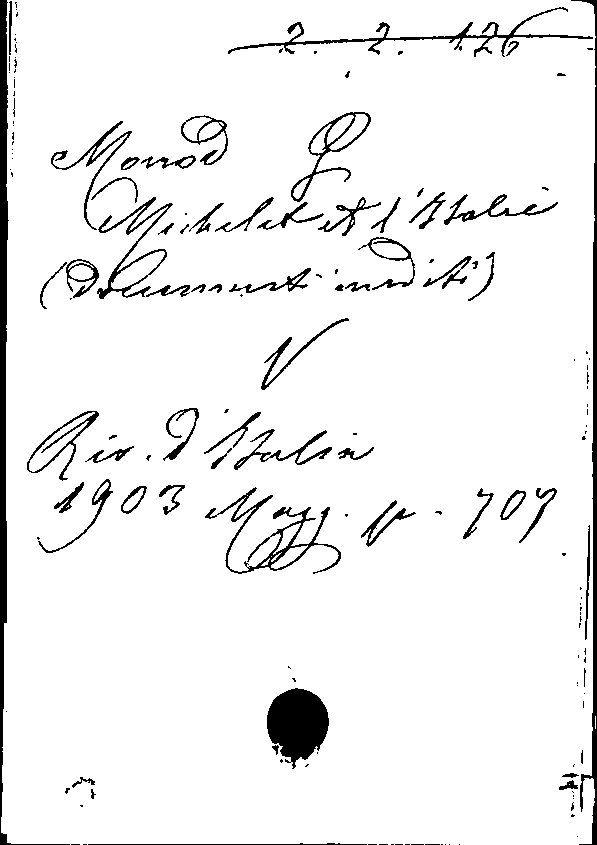 2. 2. 126
Monod G
Michelet et l'Italie
(Documenti inediti)
V
Riv. d'Italia
1903 Magg. p. 707